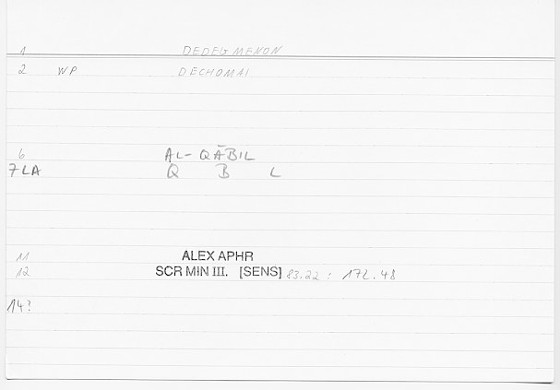 1 DEDEGMENON
2 WP DECHOMAI
6 AL-QĀBIL
7 LA Q B L
11 ALEX APHR
12 SCR MIN III. [SENS] 83.22 : 172.48
14?